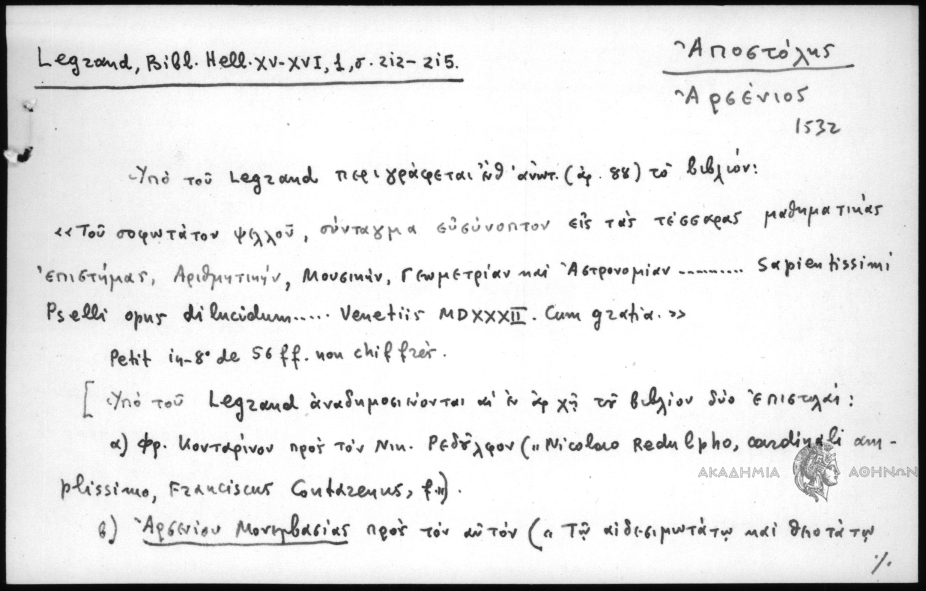 Legrand, Bibl. Hell. XV-XVI, 1, σ. 212-215.
Ἀποστόλης
Ἀρσένιος
1532
Ὑπὸ τοῦ Legrand περιγράφεται ἐνθ' ἀνωτ. (ἀρ. 88) τὸ βιβλίον:
«Τοῦ σοφωτάτου Ψελλοῦ, σύνταγμα εὐσύνοπτον εἰς τὰς τέσσαρας μαθηματικὰς
ἐπιστήμας, Ἀριθμητικὴν, Μουσικὴν, Γεωμετρίαν καὶ Ἀστρονομίαν ......... Sapientissimi
Pselli opus dilucidum..... Venetiis MDXXXII. Cum gratia.»
Petit in-8° de 56 ff. non chiffrés.
[Ὑπὸ τοῦ Legrand ἀναδημοσιεύονται αἱ ἐν ἀρχῇ τοῦ βιβλίου δύο ἐπιστολαί:
α) Φρ. Κονταρίνου πρὸς τὸν Νικ. Ρεδύλφον („Nicolao Redulpho, cardinali am-
plissimo, Franciscus Contarenus, f.").
β) Ἀρσενίου Μονεμβασίας πρὸς τὸν αὐτόν („Τῷ αἰδεσιμωτάτῳ καὶ θειοτάτῳ
./.
ΑΚΑΔΗΜΙΑ ΑΘΗΝΩΝ